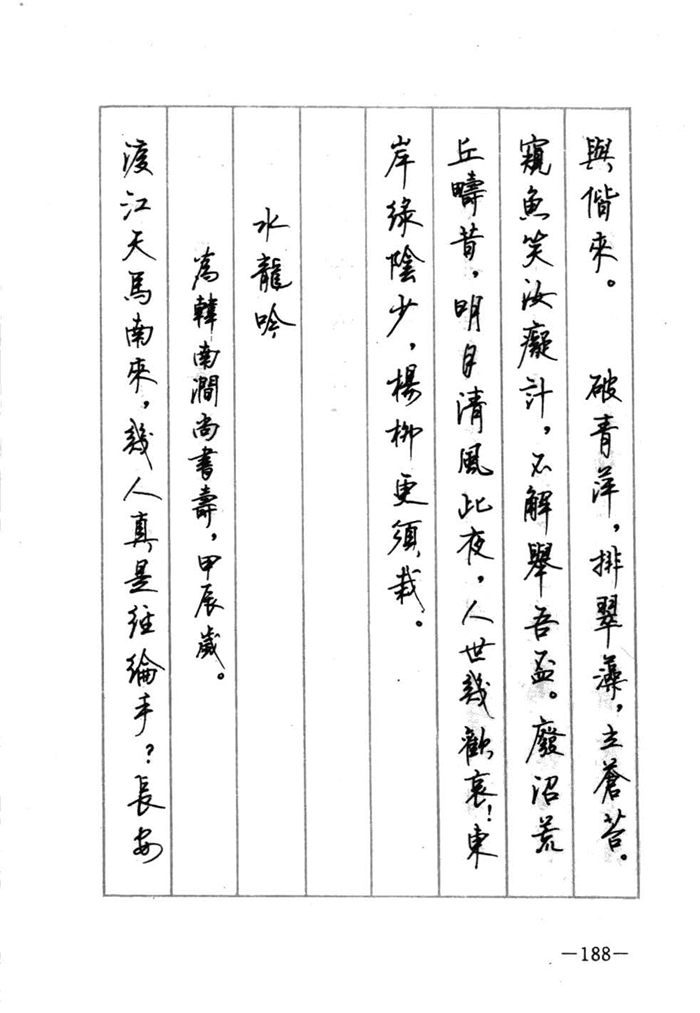 與偕來。　破青萍，排翠藻，立蒼苔。
窺魚笑汝癡計，不解舉吾盃。廢沼荒
丘疇昔，明月清風此夜，人世幾歡哀！東
岸綠陰少，楊柳更須栽。
水龍吟
為韓南澗尚書壽，甲辰歲。
渡江天馬南來，幾人真是經綸手？長安
—188—